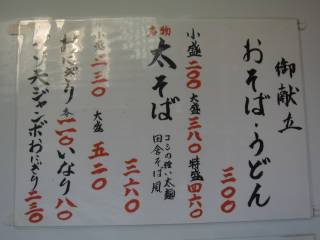 御献立
おそば・うどん 三〇〇
小盛 二〇〇 大盛 三八〇 特盛 四六〇
名物 太そば コシの強い太麺 田舎そば風 三六〇
小盛 二三〇 大盛 五二〇
おにぎり 各一一〇 いなり 八〇
天ジャンボおにぎり 二三〇